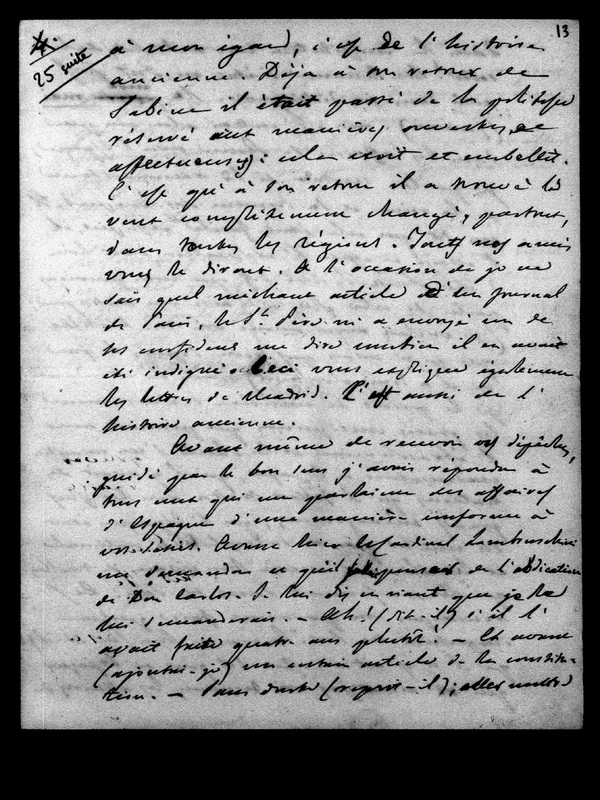 13
4.
25 suite
à mon égard, c'est de l'histoire
ancienne. Déja à son retour de
Sabine il était passé de la politesse
réservé aux manières ouvertes, et
affectueuses: cela croit et embellit.
C'est qu'à son retour il a trouvé le
vent complètement changé, partout,
dans toutes les régions. Tous nos amis
vous le diront. A l'occasion de je ne
sais quel méchant article d'un journal
de Paris, le St. Père m'a envoyé un de
ses confidens me dire combien il en avait
été indigné. Ceci vous explique également
les lettres de Madrid. C'est aussi de l'
histoire ancienne.
Avant même de recevoir vos dépêches,
guidé par le bon sens j'avais répondu à
tous ceux qui me parlaient des affaires
d'Espagne d'une manière conforme à
vos idées. Avant hier le Cardinal Lambruschini
me demanda ce qu'il pensait de l'abdication
de Don Carlos. Je lui dis en riant que je le
lui demanderais. — Ah! (dit-il) s'il l'
avait faite quatre ans plutôt! — Et avant
(ajoutai-je) un certain article de la constitu-
tion. — Sans doute (reprit-il);